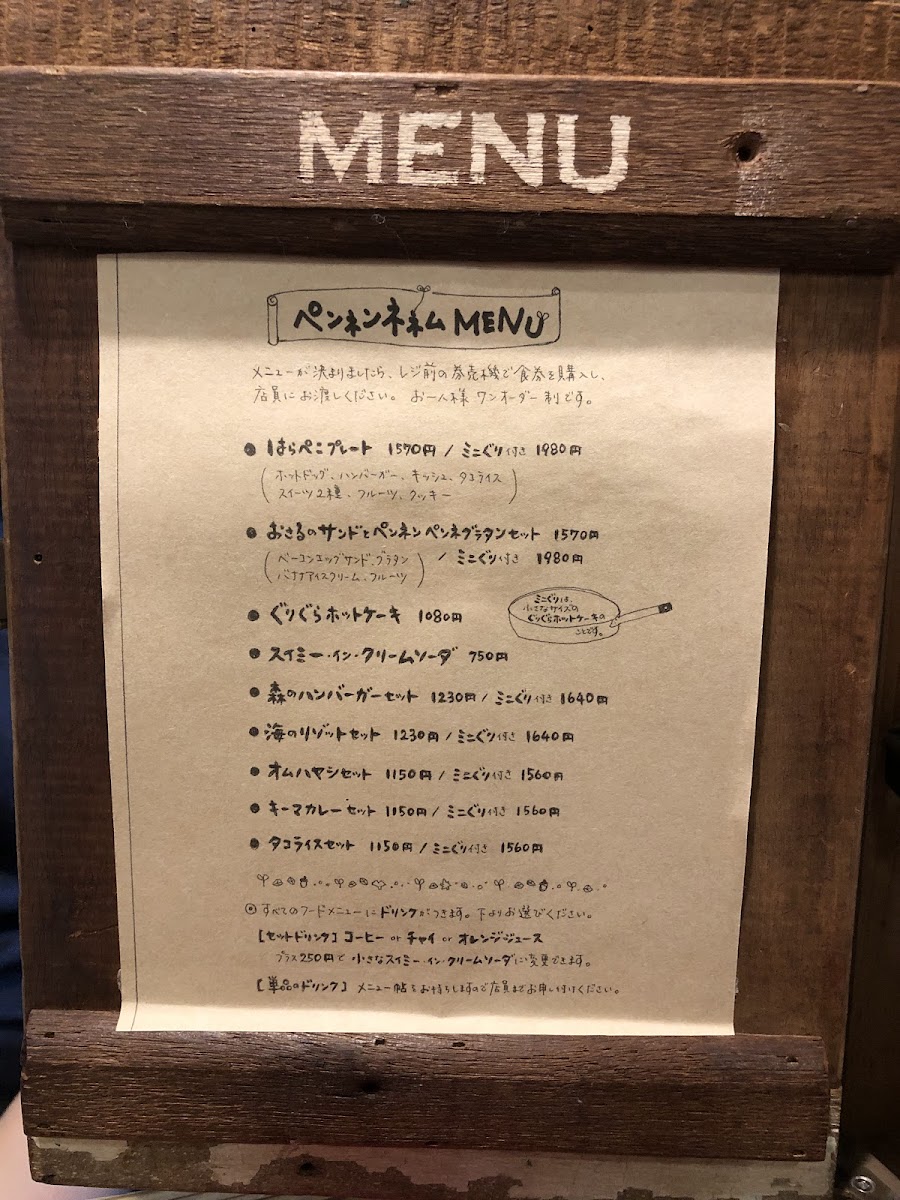 MENU
ペンネンネネム MENU
メニューが決まりましたら、レジ前の券売機で食券を購入し、
店員にお渡しください。 お一人様 ワンオーダー制です。
● はらぺこプレート 1570円 / ミニぐり付き 1980円
(ホットドッグ、ハンバーガー、キッシュ、タコライス
スイーツ2種、フルーツ、クッキー)
● おさるのサンドとペンネンペンネグラタンセット 1570円
(ベーコンエッグサンド、グラタン / ミニぐり付き 1980円
バナナアイスクリーム、フルーツ)
● ぐりぐらホットケーキ 1080円
ミニぐりは、
小さなサイズの
ぐりぐらホットケーキの
ことです。
● スイミー・イン・クリームソーダ 750円
● 森のハンバーガーセット 1230円 / ミニぐり付き 1640円
● 海のリゾットセット 1230円 / ミニぐり付き 1640円
● オムハヤシセット 1150円 / ミニぐり付き 1560円
● キーマカレーセット 1150円 / ミニぐり付き 1560円
● タコライスセット 1150円 / ミニぐり付き 1560円
◎ すべてのフードメニューにドリンクがつきます。下よりお選びください。
[セットドリンク] コーヒー or チャイ or オレンジジュース
プラス250円で 小さなスイミー・イン・クリームソーダに変更できます。
[単品のドリンク] メニュー帖をお持ちしますので店員までお申し付けください。